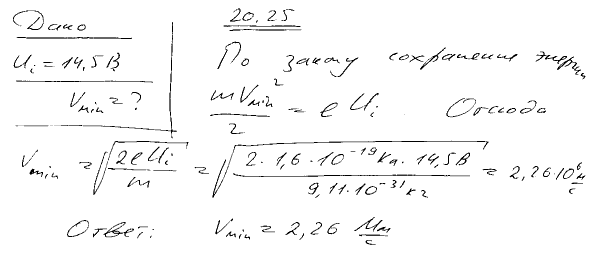 Дано
20.25
U_i = 14,5 В
По закону сохранения энергии
V_min = ?
mV_min²/2 = eU_i Отсюда
V_min = √(2eU_i/m) = √(2·1,6·10⁻¹⁹Кл·14,5В/9,11·10⁻³¹кг) = 2,26·10⁶ м/с
Ответ: V_min = 2,26 Мм/с